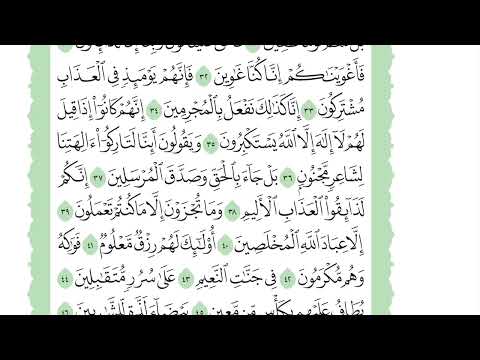 فَأَغْوَيْنَٰكُمْ إِنَّا كُنَّا غَٰوِينَ ٣٢ فَإِنَّهُمْ يَوْمَئِذٍ فِى ٱلْعَذَابِ
مُشْتَرِكُونَ ٣٣ إِنَّا كَذَٰلِكَ نَفْعَلُ بِٱلْمُجْرِمِينَ ٣٤ إِنَّهُمْ كَانُوٓا۟ إِذَا قِيلَ
لَهُمْ لَآ إِلَٰهَ إِلَّا ٱللَّهُ يَسْتَكْبِرُونَ ٣٥ وَيَقُولُونَ أَئِنَّا لَتَارِكُوٓا۟ ءَالِهَتِنَا
لِشَاعِرٍ مَّجْنُونٍۭ ٣٦ بَلْ جَآءَ بِٱلْحَقِّ وَصَدَّقَ ٱلْمُرْسَلِينَ ٣٧ إِنَّكُمْ
لَذَآئِقُوا۟ ٱلْعَذَابِ ٱلْأَلِيمِ ٣٨ وَمَا تُجْزَوْنَ إِلَّا مَا كُنتُمْ تَعْمَلُونَ ٣٩
إِلَّا عِبَادَ ٱللَّهِ ٱلْمُخْلَصِينَ ٤٠ أُو۟لَٰٓئِكَ لَهُمْ رِزْقٌ مَّعْلُومٌ ٤١ فَوَٰكِهُ
وَهُم مُّكْرَمُونَ ٤٢ فِى جَنَّٰتِ ٱلنَّعِيمِ ٤٣ عَلَىٰ سُرُرٍ مُّتَقَٰبِلِينَ ٤٤
يُطَافُ عَلَيْهِم بِكَأْسٍ مِّن مَّعِينٍۭ ٤٥ بَيْضَآءَ لَذَّةٍ لِّلشَّٰرِبِينَ ٤٦